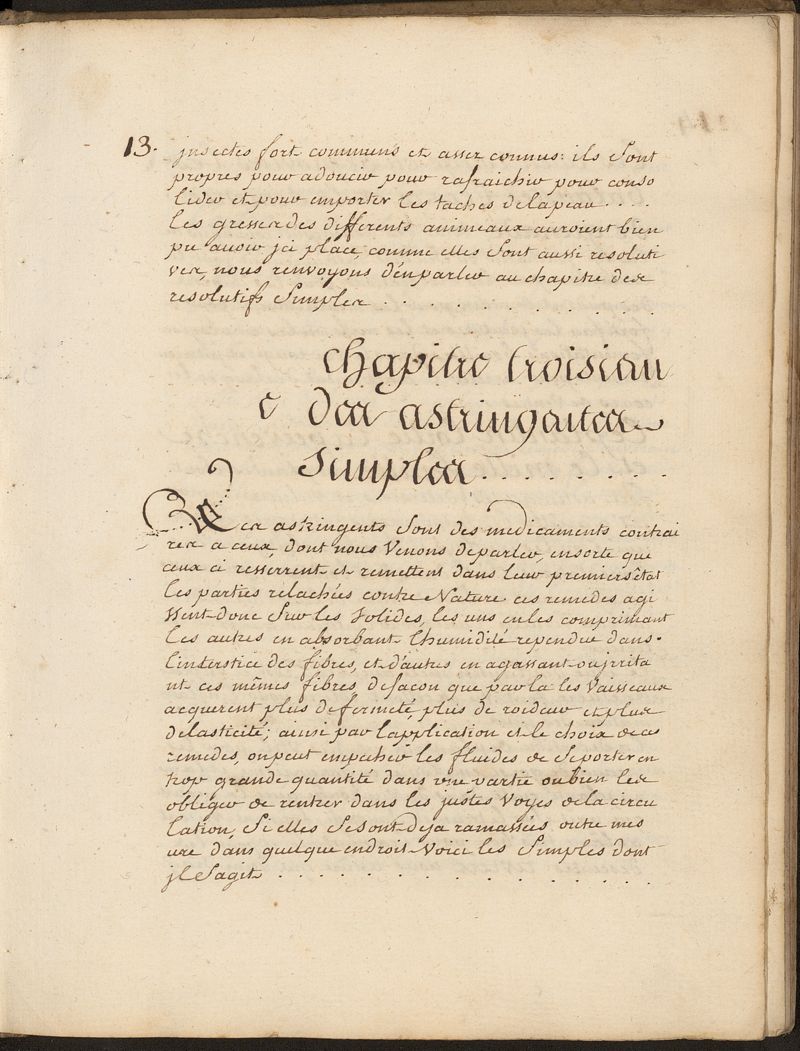 13. jnsectes fort communs et assez connus: ils sont
propres pour adoucir pour rafraichir pour conso
lider et pour emporter les taches delapeau....
les gresses des differents animeaux auroient bien
pu avoir jci place, comme elles sont aussi resoluti
ves, nous renvoyons d'en parler au chapitre des
resolutifs simples . . . . . . . . .
chapitre troisiem
e des astringentes
simples . . . . . . . .
Les astringents sont des medicaments contrai
res a ceux, dont nous Venons deparler, ensorte que
ceux ci resserrent et remettent dans leur premiers état
les parties relachées contre Nature ces remedes agi
ssent donc sur les solides, les uns en les comprimant
les autres en absorbant l'humidité rependue dans.
l'interstice des fibres, et d'autres en agassant oujrrita
nt ces mêmes fibres, defacon que par la les Vaisseaux
acquerent plus defermeté, plus de roideur et plus
delasticité; ainsi par l'application et le choix de ces
remedes, on peut empecher les fluides de seporter en
trop grande quantité dans une partie oubien les
obliger de rentrer dans les justes Voyes dela circu
lation, si elles sesont deja ramassées outre mes
ure dans quelque endroit. Voici les simples dont
jl sagit . . . . . . . . . . . .